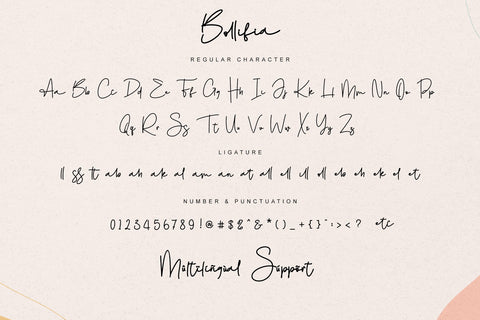 Bollifia
REGULAR CHARACTER
Aa Bb Cc Dd Ee Ff Gg Hh Ii Jj Kk Ll Mm Nn Oo Pp
Qq Rr Ss Tt Uu Vv Ww Xx Yy Zz
LIGATURE
ll ss tt ab ah ak al am an at all ell ill oll eb eh ek el et
NUMBER & PUNCTUATION
0123456789!@#$%^&*()_+{}":><? etc
Multilingual Support